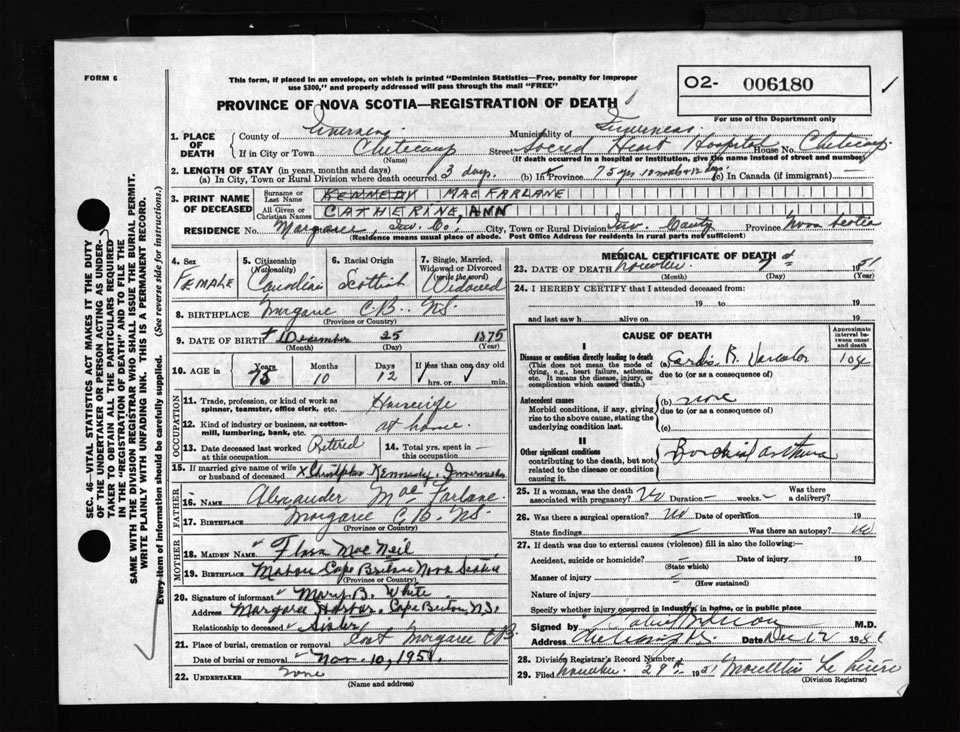 FORM 6
This form, if placed in an envelope, on which is printed "Dominion Statistics—Free, penalty for improper
use $300," and properly addressed will pass through the mail "FREE"
O2- 006180
PROVINCE OF NOVA SCOTIA—REGISTRATION OF DEATH
For use of the Department only
1. PLACE OF DEATH
County of Inverness. Municipality of Inverness.
If in City or Town Cheticamp Street Sacred Heart Hospital House No. Cheticamp
(Name) (If death occurred in a hospital or institution, give the name instead of street and number)
2. LENGTH OF STAY (in years, months and days)
(a) In City, Town or Rural Division where death occurred 3 days. (b) In Province 75 yrs 10 mths 12 days (c) In Canada (if immigrant) —
3. PRINT NAME OF DECEASED
Surname or Last Name KENNEDY MACFARLANE
All Given or Christian Names CATHERINE, ANN
RESIDENCE No. Margaree, Inv. Co., City, Town or Rural Division Inv. County Province Nova Scotia
(Residence means usual place of abode. Post Office Address for residents in rural parts not sufficient)
4. Sex FEMALE
5. Citizenship (Nationality) Canadian
6. Racial Origin Scottish
7. Single, Married, Widowed or Divorced (write the word) Widowed
8. BIRTHPLACE Margaree C.B. N.S.
(Province or Country)
9. DATE OF BIRTH December 25 1875
(Month) (Day) (Year)
10. AGE in Years 75 Months 10 Days 12 If less than one day old hrs. or min.
OCCUPATION
11. Trade, profession, or kind of work as spinner, teamster, office clerk, etc. Housewife
12. Kind of industry or business, as cotton-mill, lumbering, bank, etc. at home.
13. Date deceased last worked at this occupation Retired
14. Total yrs. spent in this occupation —
15. If married give name of wife or husband of deceased x Christopher Kennedy,
FATHER
16. NAME Alexander MacFarlane.
17. BIRTHPLACE Margaree C.B. N.S.
(Province or Country)
MOTHER
18. MAIDEN NAME Flora MacNeil
19. BIRTHPLACE Mabou Cape Breton Nova Scotia
(Province or Country)
20. Signature of informant Mary B. White
Address Margaree Harbor, Cape Breton, N.S.
Relationship to deceased Sister
21. Place of burial, cremation or removal East Margaree C.B.
Date of burial or removal Nov. 10, 1951.
22. UNDERTAKER none
(Name and address)
MEDICAL CERTIFICATE OF DEATH
23. DATE OF DEATH November 7th 1951
(Month) (Day)
24. I HEREBY CERTIFY that I attended deceased from:
19 to 19
and last saw h alive on 19
CAUSE OF DEATH
Approximate interval between onset and death
I
Disease or condition directly leading to death (a) Cardio R. Vascular
(This does not mean the mode of dying, e.g., heart failure, asthenia, etc. It means the disease, injury, or complication which caused death.)
due to (or as a consequence of)
Antecedent causes (b) none
Morbid conditions, if any, giving rise to the above cause, stating the underlying condition last.
due to (or as a consequence of)
(c)
II
Other significant conditions Bronchial asthma
contributing to the death, but not related to the disease or condition causing it.
25. If a woman, was the death associated with pregnancy? No Duration — weeks — Was there a delivery?
26. Was there a surgical operation? No Date of operation 19
State findings Was there an autopsy? No
27. If death was due to external causes (violence) fill in also the following:—
Accident, suicide or homicide? Date of injury 19
(State which)
Manner of injury
(How sustained)
Nature of injury
Specify whether injury occurred in industry, in home, or in public place
Signed by M.D.
Address Date Dec 12 1951
28. Division Registrar's Record Number
29. Filed November 29th 1951
(Division Registrar)
SEC. 46—VITAL STATISTICS ACT MAKES IT THE DUTY
OF THE UNDERTAKER OR PERSON ACTING AS UNDER-
TAKER TO OBTAIN ALL THE PARTICULARS REQUIRED
IN THE "REGISTRATION OF DEATH" AND TO FILE THE
SAME WITH THE DIVISION REGISTRAR WHO SHALL ISSUE THE BURIAL PERMIT.
WRITE PLAINLY WITH UNFADING INK. THIS IS A PERMANENT RECORD.
Every item of information should be carefully supplied. (See reverse side for instructions.)